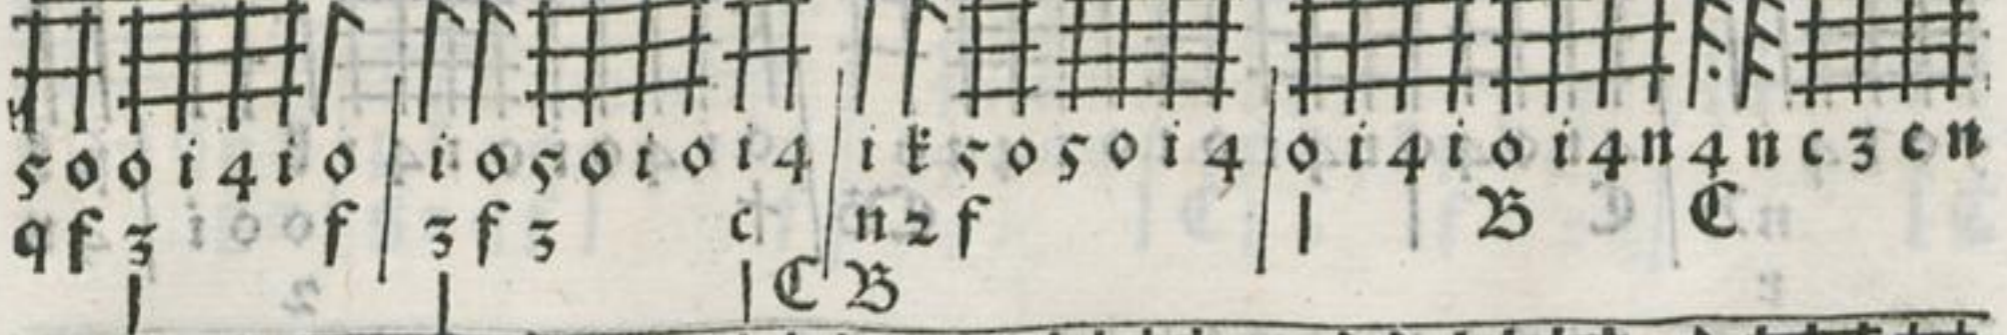 5 o o i 4 i o | i o 5 o i o i 4 | i k 5 o 5 o i 4 | o i 4 i o i 4 n 4 n c 3 c n
q f 3 f | 3 f 3 c | n 2 f | B C
| | | C B